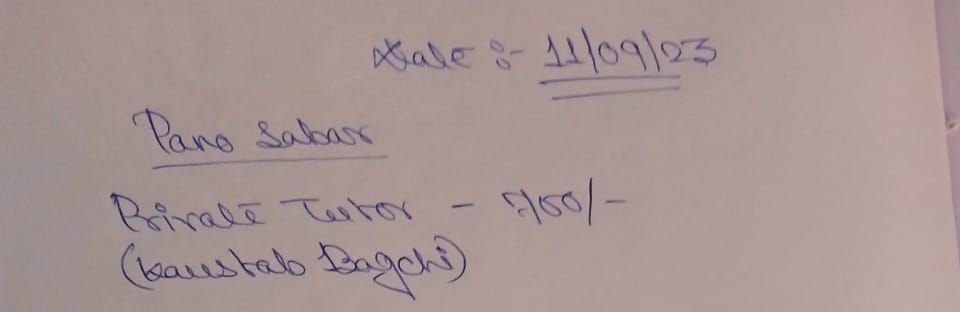 Date :- 11/09/23
Pano Sabar
Private Tutor - 700/-
(Kaustab Bagchi)